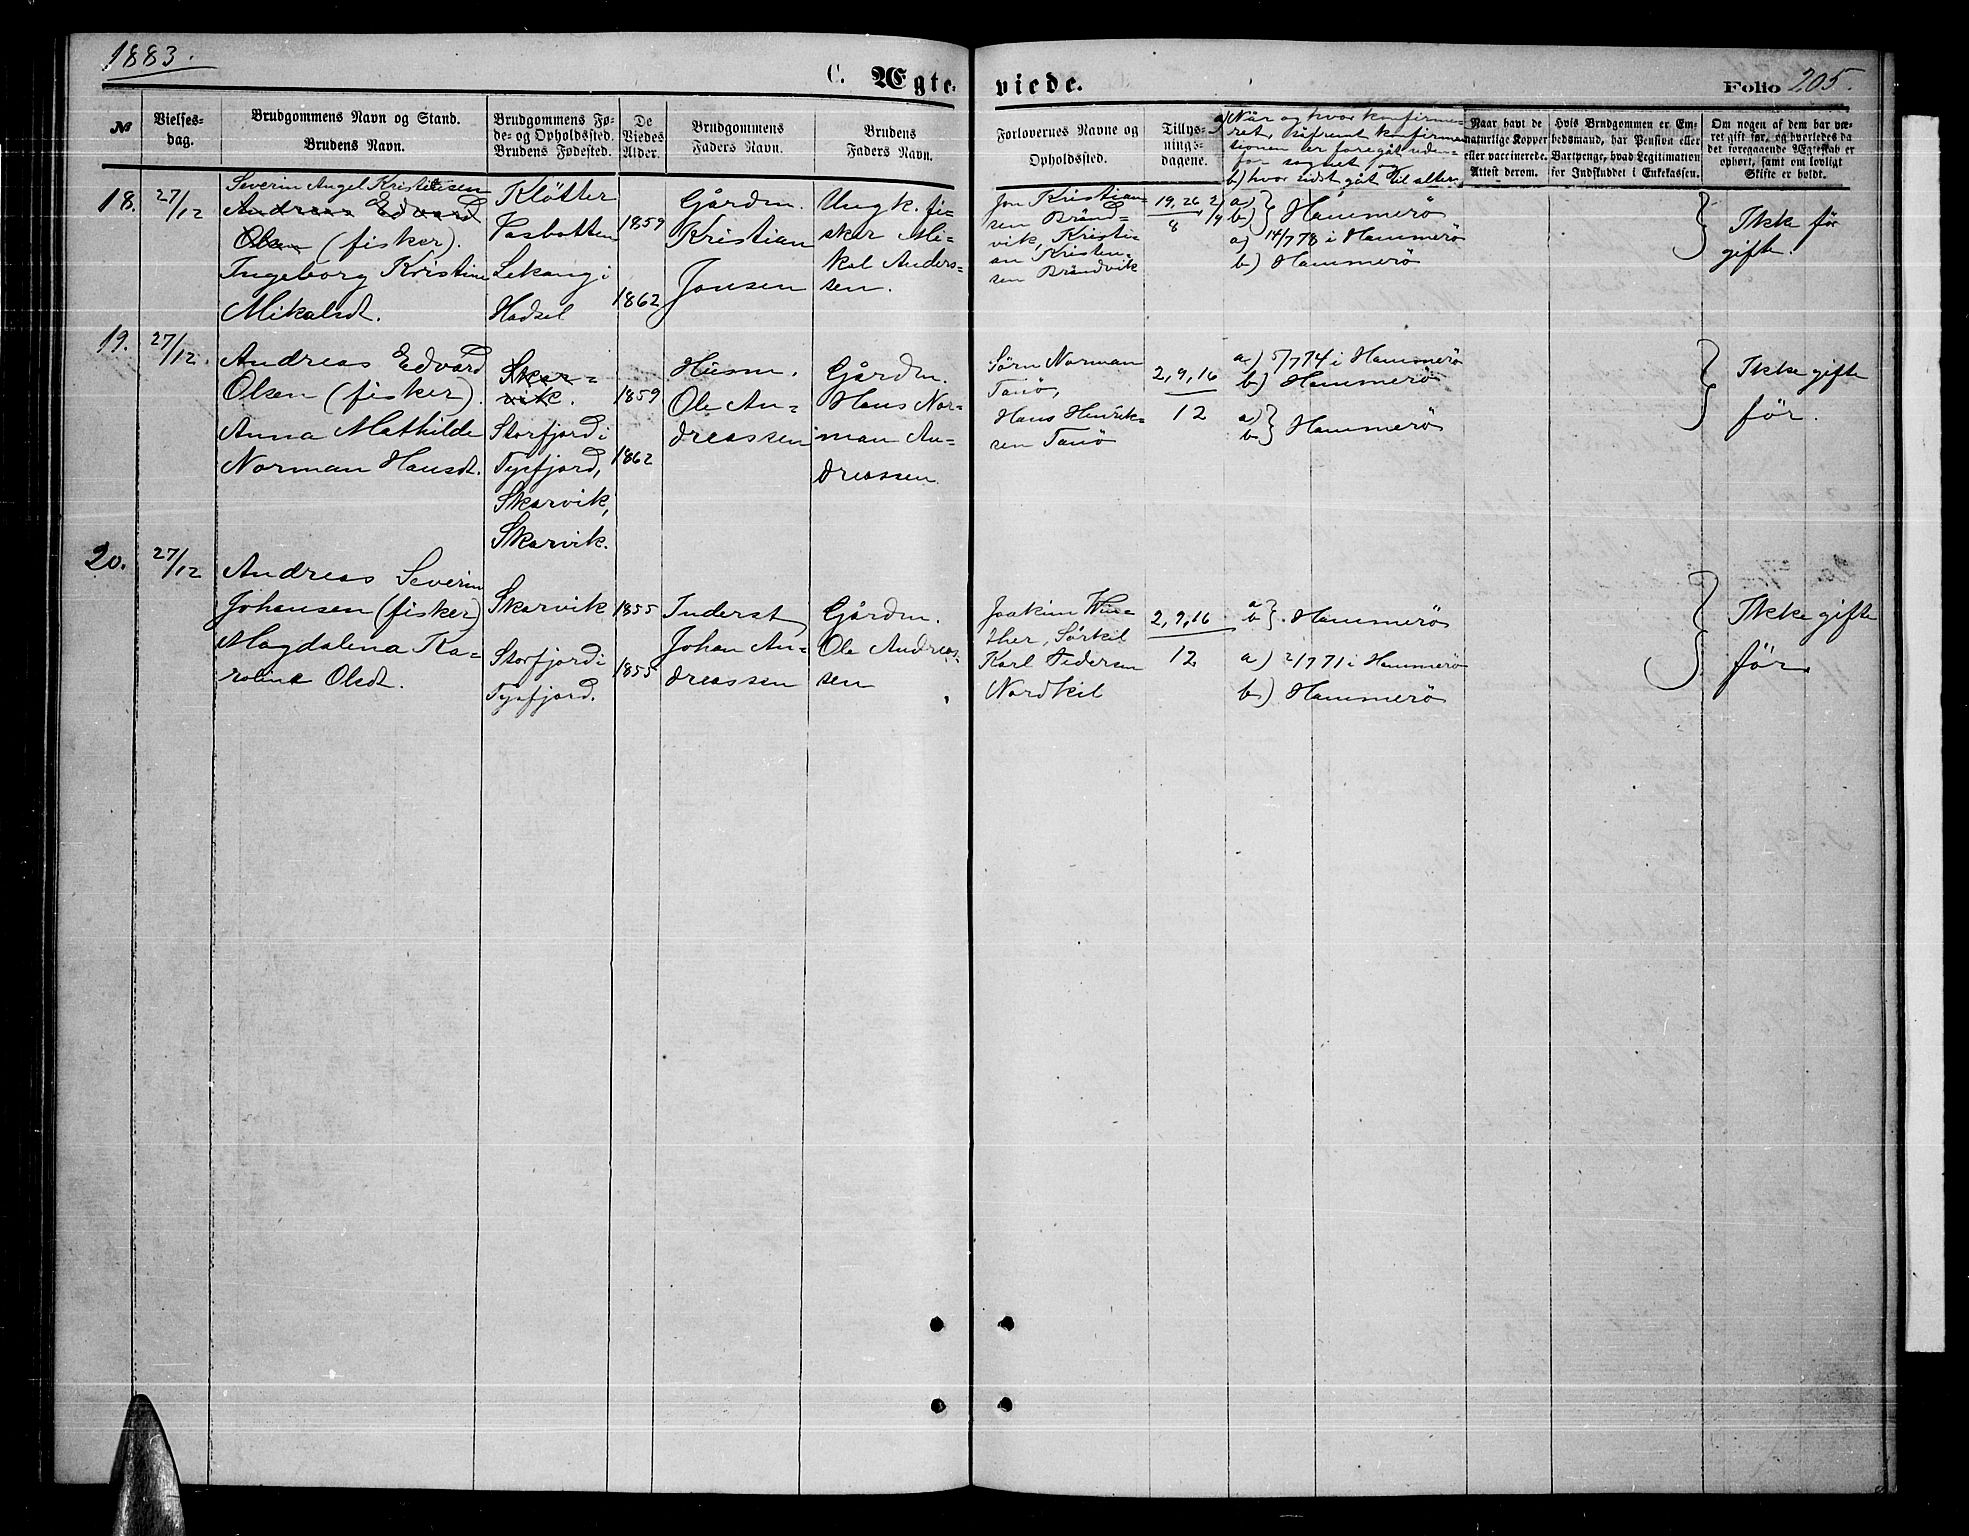 1883.
C. Ægte-
viede.
Folio 205.
№
Vielses-
dag.
Brudgommens Navn og Stand.
Brudens Navn.
Brudgommens Fø-
de- og Opholdssted.
Brudens Fødested.
De
Viedes
Alder.
Brudgommens
Faders Navn.
Brudens
Faders Navn.
Forlovernes Navne og
Opholdssted.
Tillys-
nings-
dagene.
a) När og hvor konfirme-
ret, såfremt konfirma-
tionen er foregåt uden-
for sognet, og
b) hvor sidst gåt til alters
Naar havt de
naturlige Kopper
eller vaccinerede.
Attest derom.
Hvis Brudgommen er Em-
bedsmand, har Pension eller
Vartpenge, hvad Legitimation
for Indskuddet i Enkekassen.
Om nogen af dem har væ-
ret gift før, og hvorledes da
det foregaaende Ægteskab er
ophørt, samt om lovligt
Skifte er holdt.
18.
27/12
Severin Angel Kristiansen
Andreas Edvard
Olsen (fisker).
Ingeborg Kristine
Mikalsdt.
Kløtter
Vasbotten
Lekang i
Hadsel
1859
1862
Gårdm.
Kristian
Jonsen
Ungk. fi-
sker Mi-
kal Anders-
sen.
Jon Kristian-
sen Brånd-
vik, Kristi-
an Kristen-
sen Bråndvik
19, 26 2/9
8
a)
b) } Hammerö
a) 14/7 78 i Hammerö
b) Hammerö
Ikke før
gifte.
19.
27/12.
Andreas Edvard
Olsen (fisker).
Anna Mathilde
Norman Hansdt.
Skar-
vik.
Storfjord i
Tysfjord,
Skarvik,
Skarvik.
1859
1862
Husm.
Ole An-
dreassen
Gårdm.
Hans Nor-
man An-
dreassen
Sørn Norman
Tanö,
Hans Henrik-
sen Tanö
2, 9, 16
12
a) 5/7 74 i Hammerö
b) Hammerö
a)
b) } Hammerö
Ikke gifte
før.
20.
27/12
Andreas Severin
Johansen (fisker)
Magdalena Ka-
roline Olsdt.
Skarvik
Storfjord i
Tysfjord.
1855
1855
Inderst
Johan An-
dreassen
Gårdm.
Ole Andreas-
sen
Joakim Win-
ther, Sörkil
Karl Pedersen
Nordkil
2, 9, 16
12
a
b }. Hammerö
a) 2/7 71 i Hammerö
b) Hammerö
Ikke gifte
før.